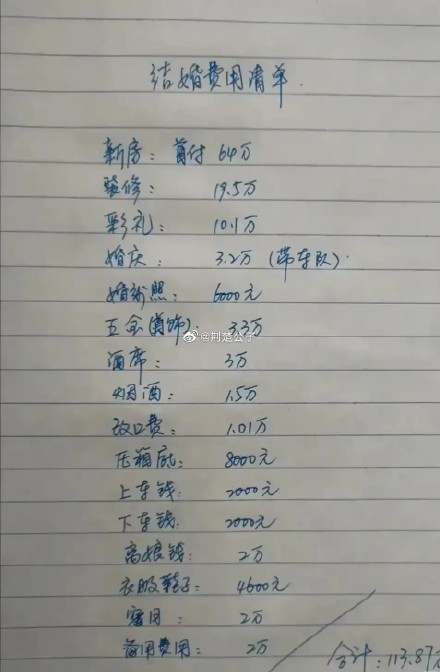 结婚费用清单.
新房: 首付 64万
装修: 19.5万
彩礼: 10.1万
婚庆: 3.2万 (带车队).
婚纱照: 6000元
五金(首饰): 3.3万
@荆楚公子
酒席: 3万
烟酒: 1.5万
改口费: 1.01万
压箱底: 8000元
上车钱: 2000元
下车钱: 2000元
离娘钱: 2万
衣服鞋子: 4600元
蜜月: 2万
备用费用: 2万
合计: 113.87万